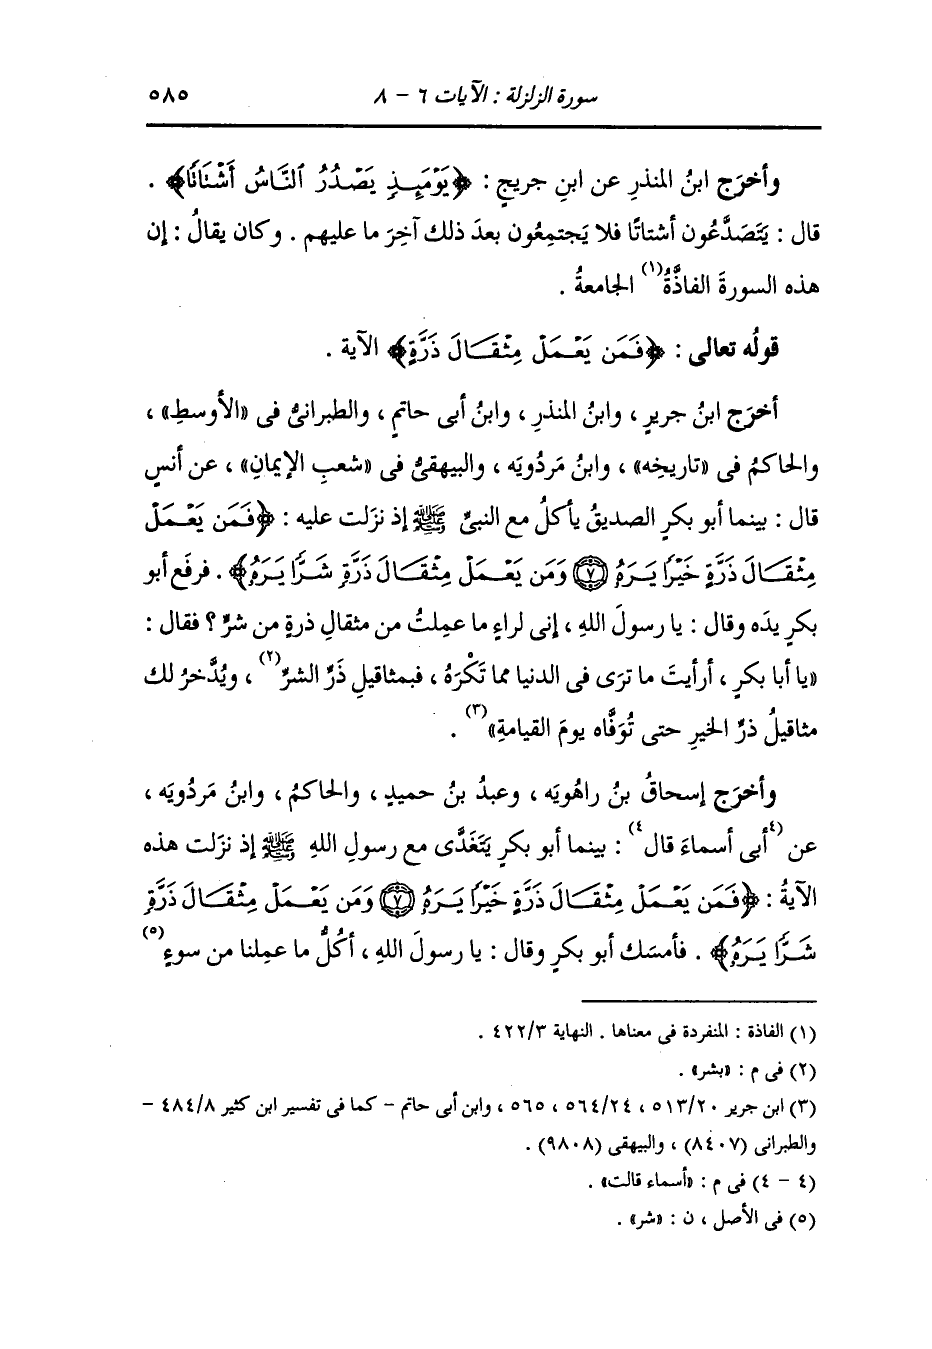 سورة الزلزلة : الآيات ٦ - ٨ ٥٨٥
وأخرَج ابنُ المنذرِ عن ابنِ جريجٍ : ﴿يَوْمَئِذٍ يَصْدُرُ ٱلنَّاسُ أَشْتَاتًا﴾ .
قال : يَتَصَدَّعُون أشتاتًا فلا يَجتمِعُون بعدَ ذلك آخِرَ ما عليهم . وكان يقالُ : إن
هذه السورةَ الفاذَّةُ(١) الجامعةُ .
قولُه تعالى : ﴿فَمَن يَعْمَلْ مِثْقَالَ ذَرَّةٍ﴾ الآية .
أخرَج ابنُ جريرٍ ، وابنُ المنذرِ ، وابنُ أبى حاتمٍ ، والطبرانىُّ فى «الأوسطِ» ،
والحاكمُ فى «تاريخِه» ، وابنُ مَردُويَه ، والبيهقىُّ فى «شعبِ الإيمانِ» ، عن أنسٍ
قال : بينما أبو بكرٍ الصديقُ يأكلُ مع النبىِّ ﷺ إذ نزَلت عليه : ﴿فَمَن يَعْمَلْ
مِثْقَالَ ذَرَّةٍ خَيْرًا يَرَهُ ۝٧ وَمَن يَعْمَلْ مِثْقَالَ ذَرَّةٍ شَرًّا يَرَهُ﴾ . فرفَع أبو
بكرٍ يدَه وقال : يا رسولَ اللهِ ، إنى لراءٍ ما عمِلتُ من مثقالِ ذرةٍ من شرٍّ ؟ فقال :
«يا أبا بكرٍ ، أرأيتَ ما ترَى فى الدنيا مما تَكْرَهُ ، فبمثاقيلِ ذَرِّ الشرِّ(٢) ، ويُدَّخرُ لك
مثاقيلُ ذرِّ الخيرِ حتى تُوَفَّاه يومَ القيامةِ»(٣) .
وأخرَج إسحاقُ بنُ راهُويَه ، وعبدُ بنُ حميدٍ ، والحاكمُ ، وابنُ مَردُويَه ،
عن (٤أبى أسماءَ قال٤) : بينما أبو بكرٍ يَتَغَدَّى مع رسولِ اللهِ ﷺ إذ نزَلت هذه
الآيةُ : ﴿فَمَن يَعْمَلْ مِثْقَالَ ذَرَّةٍ خَيْرًا يَرَهُ ۝٧ وَمَن يَعْمَلْ مِثْقَالَ ذَرَّةٍ
شَرًّا يَرَهُ﴾ . فأمسَك أبو بكرٍ وقال : يا رسولَ اللهِ ، أكُلُّ ما عمِلنا من سوءٍ(٥)
(١) الفاذة : المنفردة فى معناها . النهاية ٤٢٢/٣ .
(٢) فى م : «بشر» .
(٣) ابن جرير ٥١٣/٢٠ ، ٥٦٤/٢٤ ، ٥٦٥ ، وابن أبى حاتم - كما فى تفسير ابن كثير ٤٨٤/٨ -
والطبرانى (٨٤٠٧) ، والبيهقى (٩٨٠٨) .
(٤ - ٤) فى م : «أسماء قالت» .
(٥) فى الأصل ، ن : «شر» .